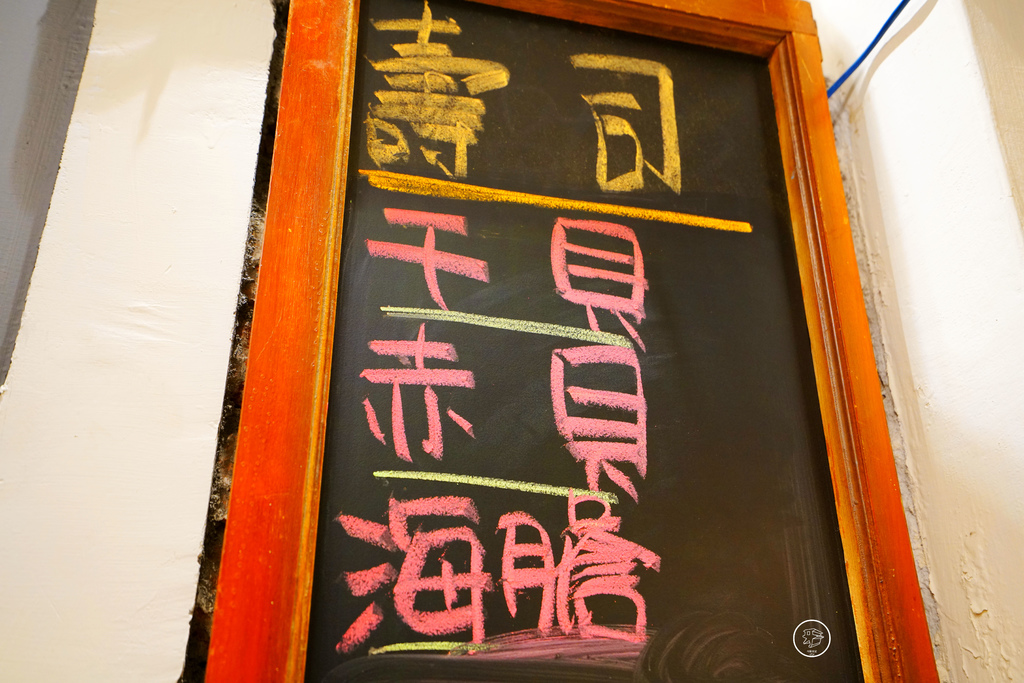 壽司
干貝
赤貝
海膽